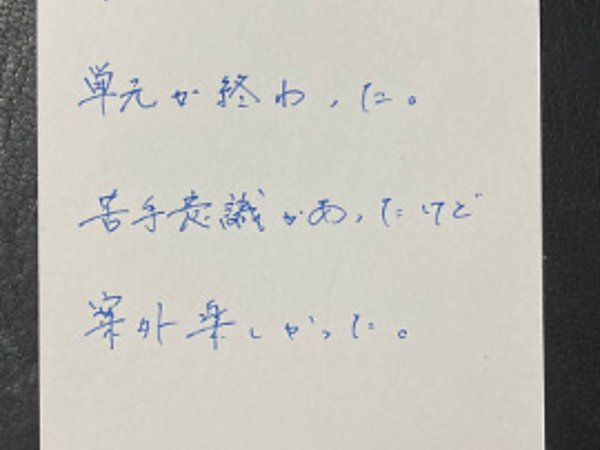 単元が終わった。
苦手意識があったけど
案外楽しかった。